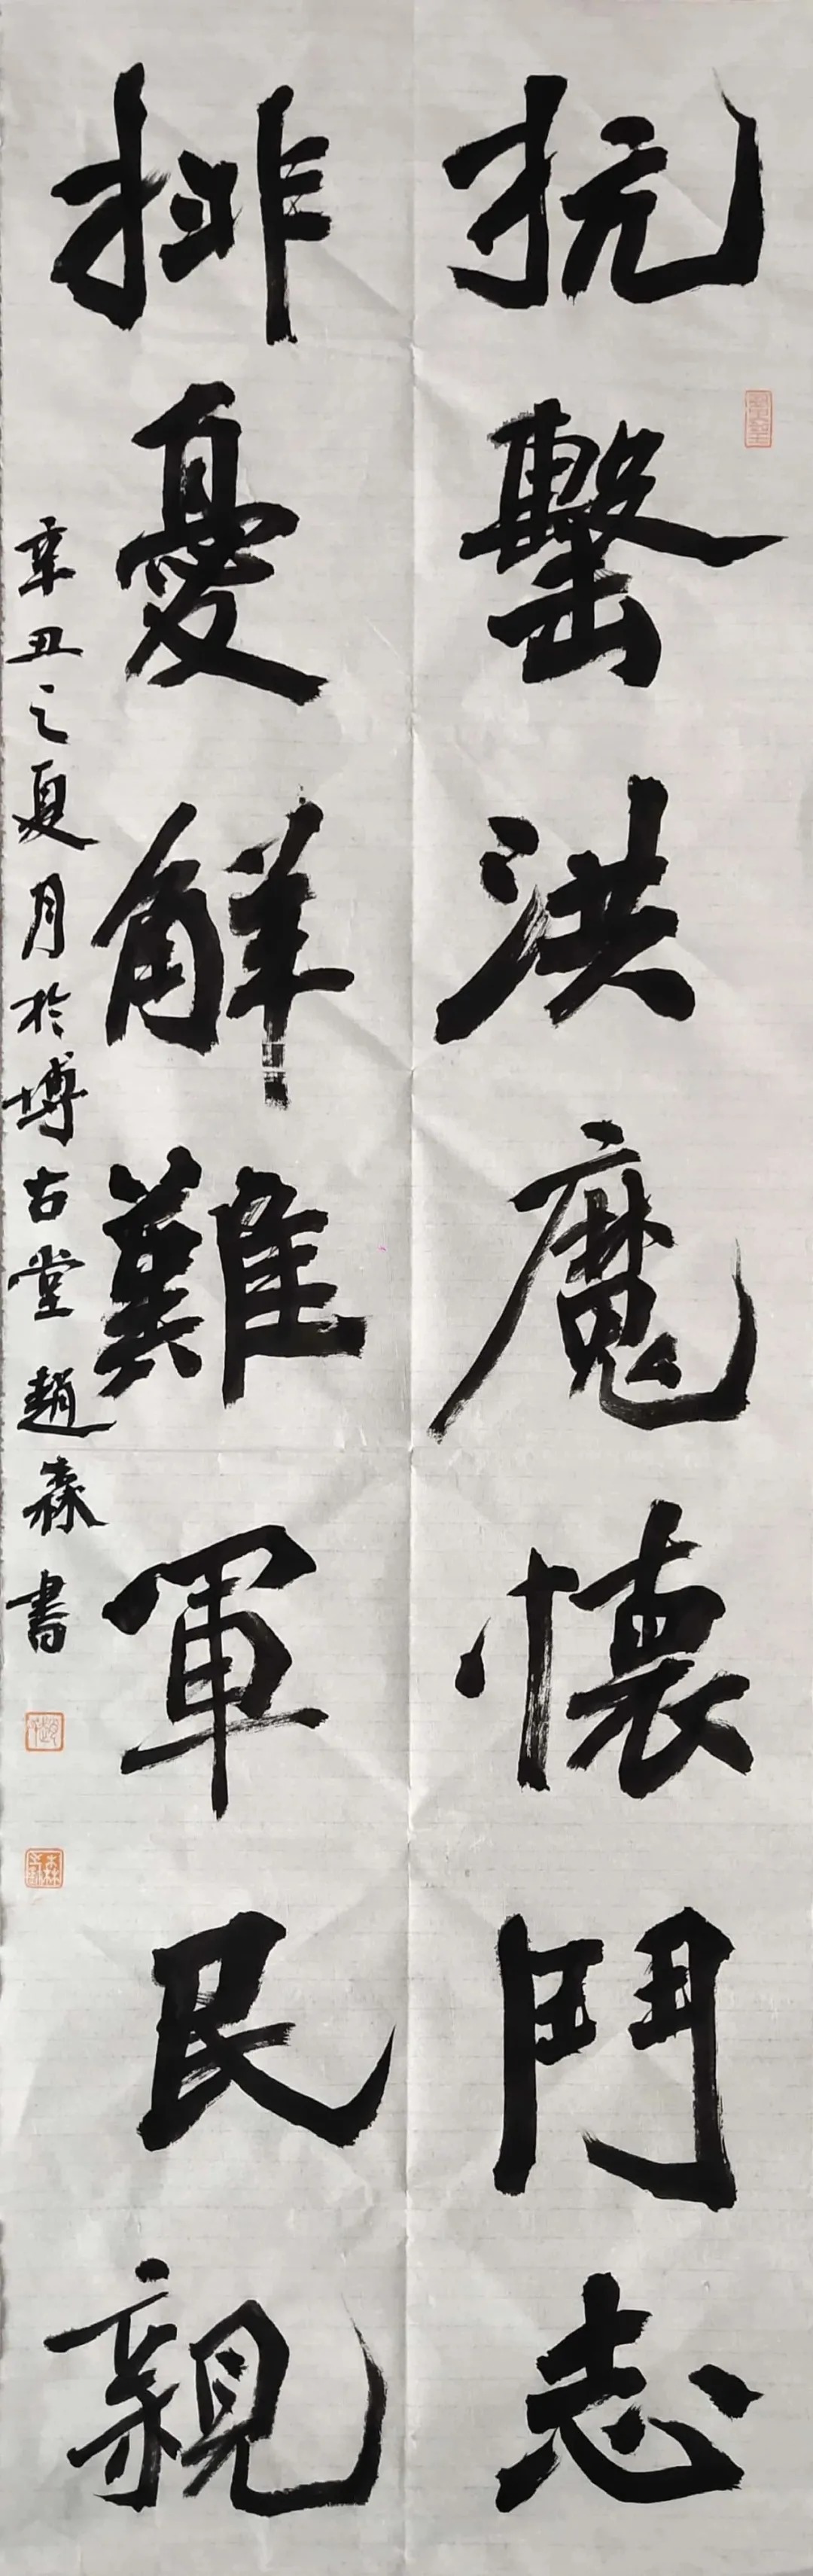 抗擊洪魔懷鬥志
排憂解難軍民親
辛丑之夏月於博古堂趙森書